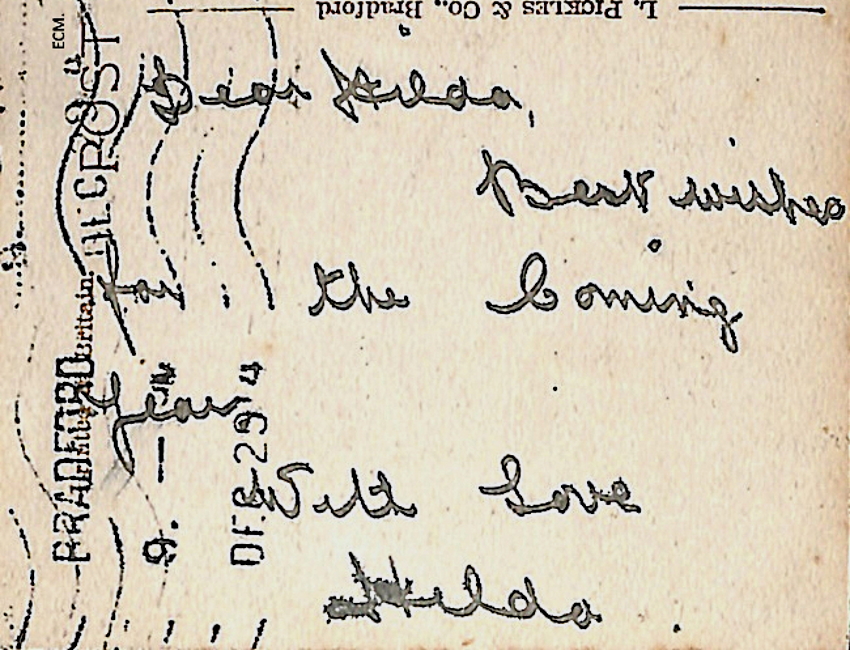 L. PICKLES & Co., Bradford
Dear Hilda,
Best wishes
for the Coming
Year
With Love
Hilda
ECM.
POST
DEC
Britain
BRADFORD
9.
DEC 29